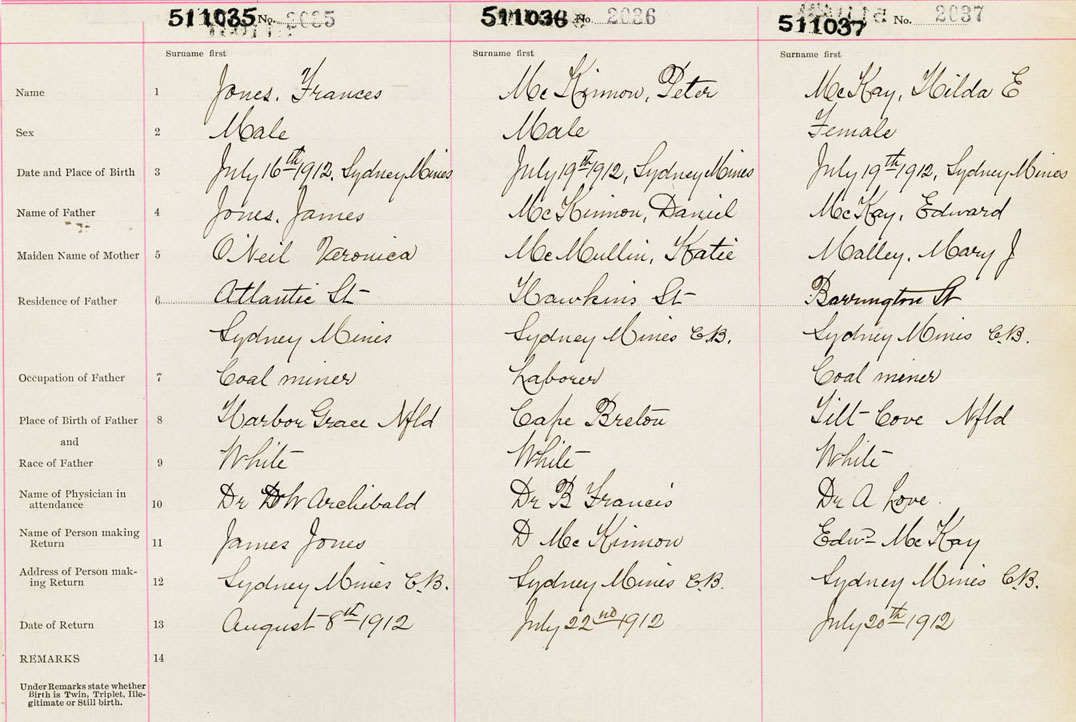 511035 No. 2035 511036 No. 2036 511037 No. 2037
Surname first Surname first Surname first
Name 1 Jones, Frances McKinnon, Peter McKay, Hilda E
Sex 2 Male Male Female
Date and Place of Birth 3 July 16th 1912, Sydney Mines July 19th 1912, Sydney Mines July 19th 1912, Sydney Mines
Name of Father 4 Jones, James McKinnon, Daniel McKay, Edward
Maiden Name of Mother 5 O'Neil Veronica McMullin, Katie Malley, Mary J
Residence of Father 6 Atlantic St Hawkins St Barrington St
Sydney Mines Sydney Mines C.B. Sydney Mines C.B.
Occupation of Father 7 Coal miner Laborer Coal miner
Place of Birth of Father 8 Harbor Grace Nfld Cape Breton Tilt Cove Nfld
and
Race of Father 9 White White White
Name of Physician in
attendance 10 Dr W Archibald Dr B Francis Dr A Love
Name of Person making
Return 11 James Jones D McKinnon Edwd McKay
Address of Person mak-
ing Return 12 Sydney Mines C.B. Sydney Mines C.B. Sydney Mines C.B.
Date of Return 13 August 8th 1912 July 22nd 1912 July 20th 1912
REMARKS 14
Under Remarks state whether
Birth is Twin, Triplet, Ille-
gitimate or Still birth.